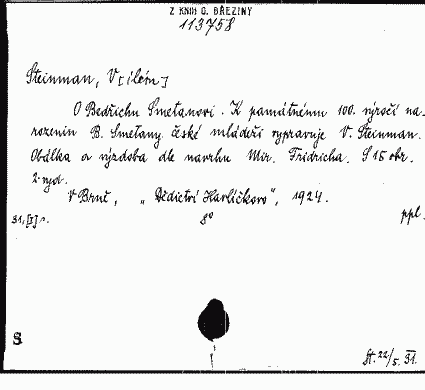 Z KNIH O. BŘEZINY
113758
Steinman, V[ilém]
O Bedřichu Smetanovi. K památnému 100. výročí na-
rozenin B. Smetany české mládeži vypravuje V. Steinman.
Obálka a výzdoba dle návrhu Mir. Fridricha. S 15 obr.
2. vyd.
V Brně, „Dědictví Havlíčkovo", 1924.
31, [I] s. 8° ppl.
S
St. 22/5. 31.